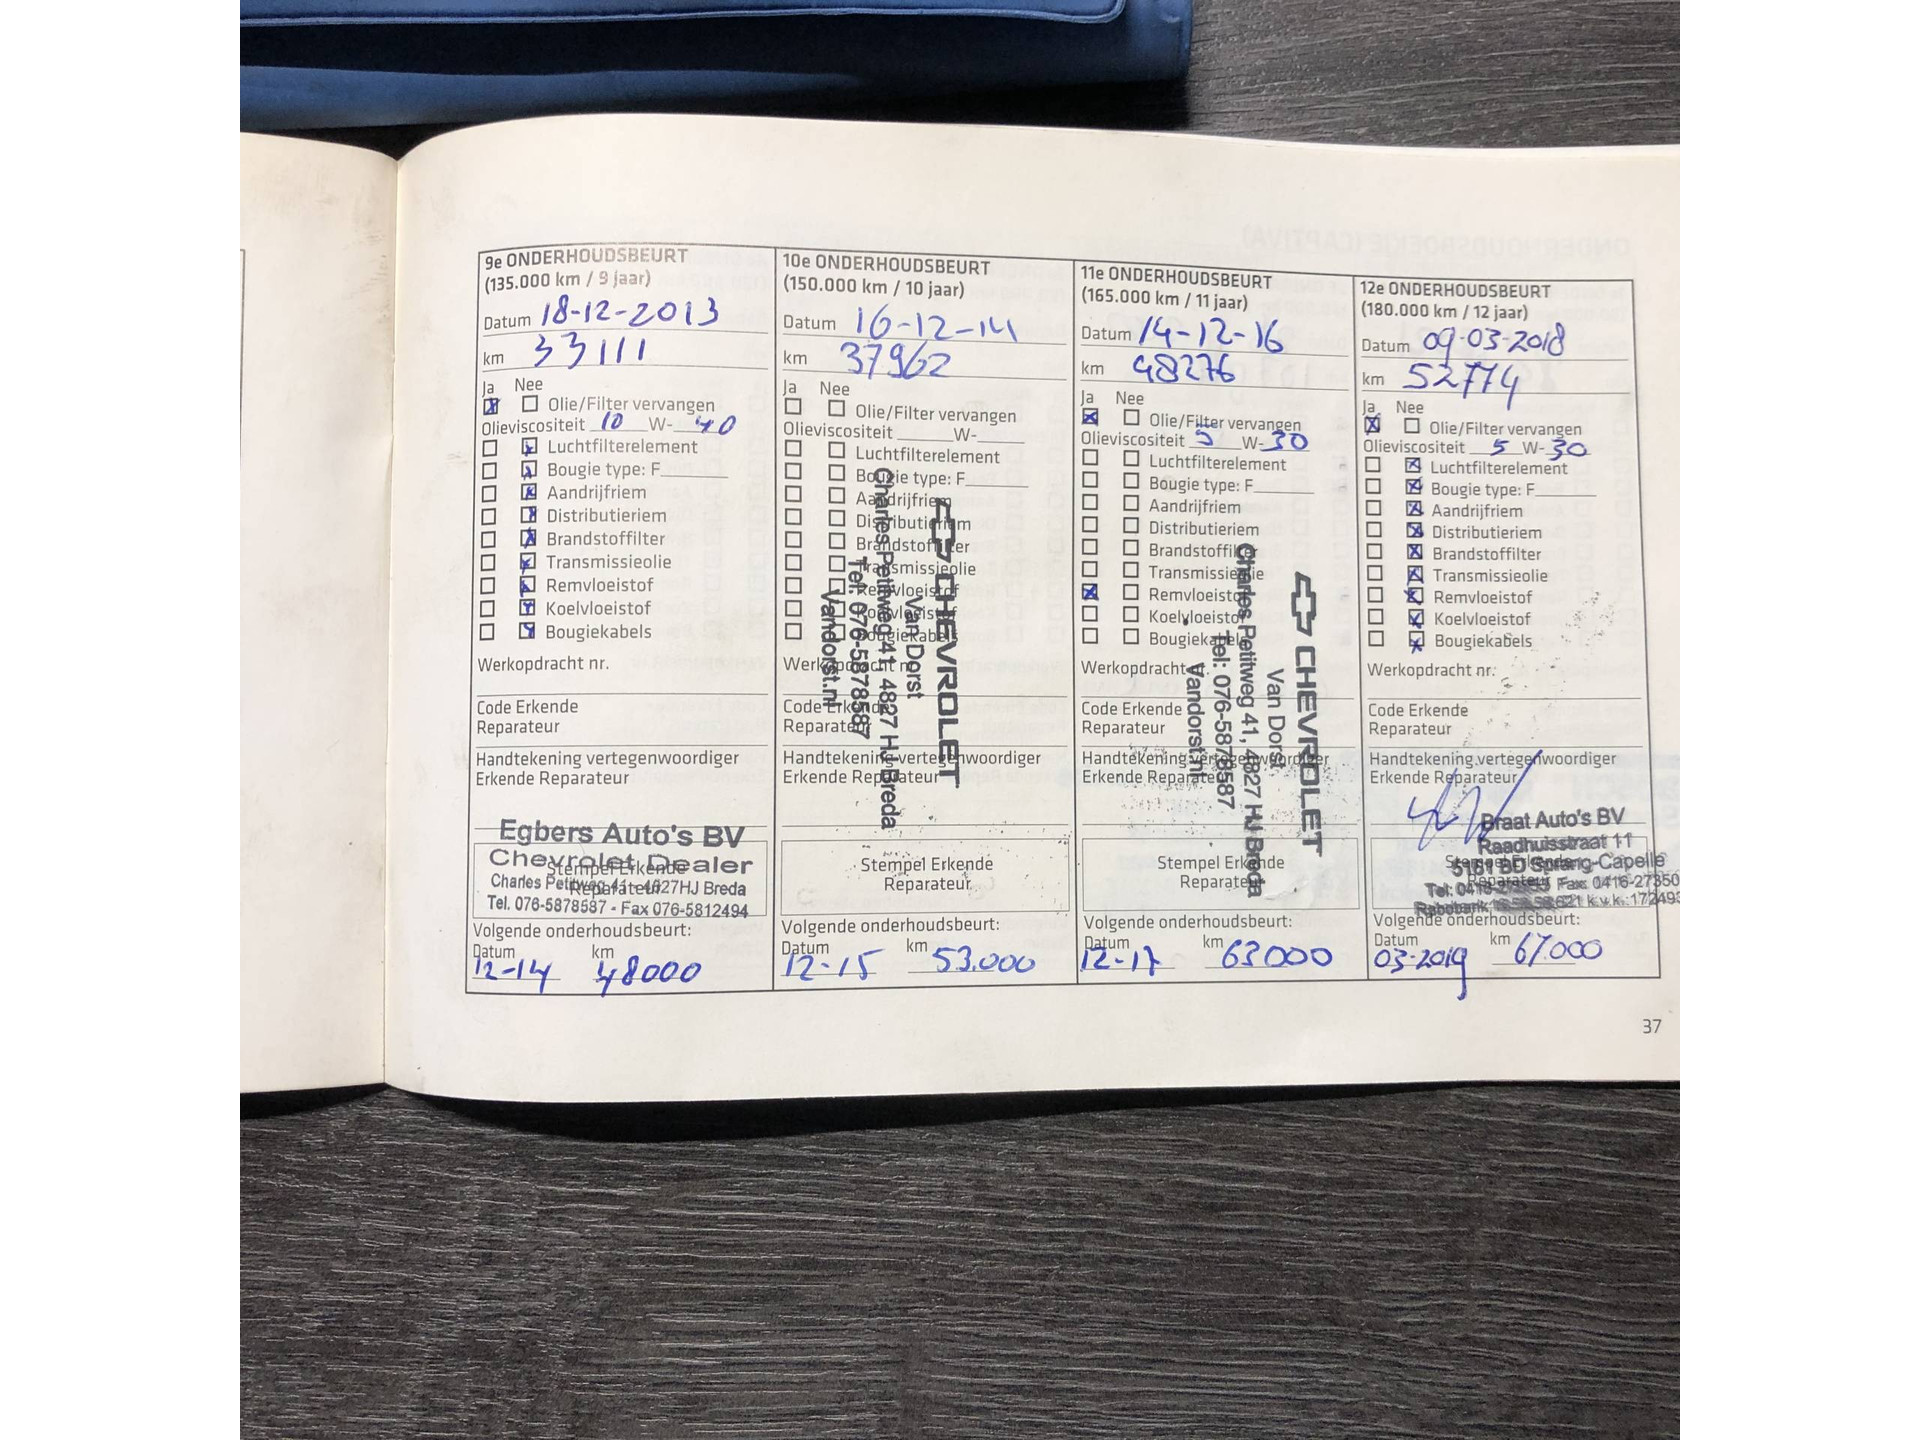 9e ONDERHOUDSBEURT
(135.000 km / 9 jaar)
Datum 18-12-2013
km 33111
Ja Nee
Olie/Filter vervangen
Olieviscositeit 10 W- 40
Luchtfilterelement
Bougie type: F
Aandrijfriem
Distributieriem
Brandstoffilter
Transmissieolie
Remvloeistof
Koelvloeistof
Bougiekabels
Werkopdracht nr.
Code Erkende
Reparateur
Handtekening vertegenwoordiger
Erkende Reparateur
Egbers Auto's BV
Chevrolet Dealer
Stempel Erkende
Reparateur
Charles Petitweg 41 - 4827HJ Breda
Tel. 076-5878587 - Fax 076-5812494
Volgende onderhoudsbeurt:
Datum km
12-14 48000
10e ONDERHOUDSBEURT
(150.000 km / 10 jaar)
Datum 16-12-14
km 37962
Ja Nee
Olie/Filter vervangen
Olieviscositeit W-
Luchtfilterelement
Bougie type: F
Aandrijfriem
Distributieriem
Brandstoffilter
Transmissieolie
Remvloeistof
Koelvloeistof
Bougiekabels
Werkopdracht nr.
Code Erkende
Reparateur
Handtekening vertegenwoordiger
Erkende Reparateur
CHEVROLET
Van Dorst
Charles Petitweg 41, 4827 HJ Breda
Tel: 076-5878587
Vandorst.nl
Stempel Erkende
Reparateur
Volgende onderhoudsbeurt:
Datum km
12-15 53.000
11e ONDERHOUDSBEURT
(165.000 km / 11 jaar)
Datum 14-12-16
km 48276
Ja Nee
Olie/Filter vervangen
Olieviscositeit 5 W- 30
Luchtfilterelement
Bougie type: F
Aandrijfriem
Distributieriem
Brandstoffilter
Transmissieolie
Remvloeistof
Koelvloeistof
Bougiekabels
Werkopdracht nr.
Code Erkende
Reparateur
Handtekening vertegenwoordiger
Erkende Reparateur
CHEVROLET
Van Dorst
Charles Petitweg 41, 4827 HJ Breda
Tel: 076-5878587
Vandorst.nl
Stempel Erkende
Reparateur
Volgende onderhoudsbeurt:
Datum km
12-17 63000
12e ONDERHOUDSBEURT
(180.000 km / 12 jaar)
Datum 09-03-2018
km 52774
Ja Nee
Olie/Filter vervangen
Olieviscositeit 5 W- 30
Luchtfilterelement
Bougie type: F
Aandrijfriem
Distributieriem
Brandstoffilter
Transmissieolie
Remvloeistof
Koelvloeistof
Bougiekabels
Werkopdracht nr.
Code Erkende
Reparateur
Handtekening vertegenwoordiger
Erkende Reparateur
Braat Auto's BV
Raadhuisstraat 11
Stempel Erkende
5161 BD Sprang-Capelle
Reparateur
Volgende onderhoudsbeurt:
Datum km
03-2019 67.000
37